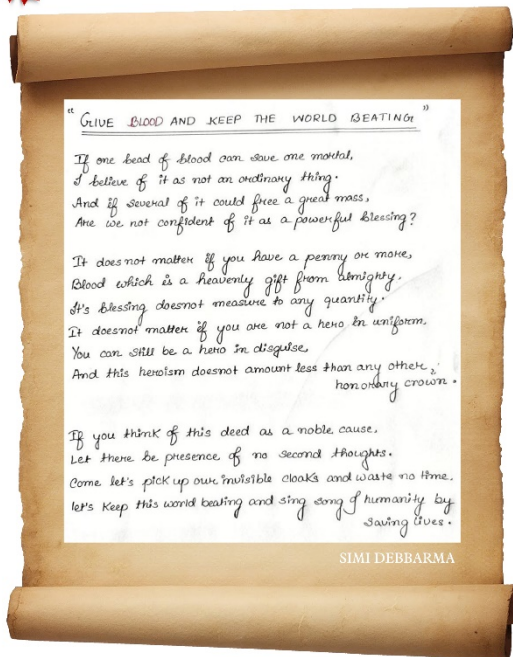 " GIVE BLOOD AND KEEP THE WORLD BEATING "
If one bead of blood can save one mortal,
I believe of it as not an ordinary thing.
And if several of it could free a great mass,
Are we not confident of it as a powerful blessing?
It does not matter if you have a penny or more,
Blood which is a heavenly gift from almighty.
It's blessing doesnot measure to any quantity.
It doesnot matter if you are not a hero in uniform,
You can still be a hero in disguise,
And this heroism doesnot amount less than any other,
honorary crown.
If you think of this deed as a noble cause,
Let there be presence of no second thoughts.
Come let's pick up our invisible cloaks and waste no time.
let's keep this world beating and sing song of humanity by
saving lives.
SIMI DEBBARMA